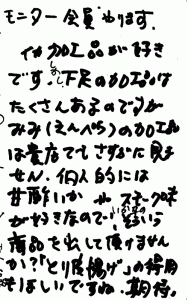 モニター会員やります。
イカ加工品が好き
です。しかし、下足の加工品は
たくさんあるのですが
みみ(えんぺら)の加工品
は貴店でもさすがに見ま
せん。個人的には
甘酢いか や スモーク味
が好きなので
商品を出して頂けません
か?「とり唐揚げ」の得用
もほしいですね。期待。